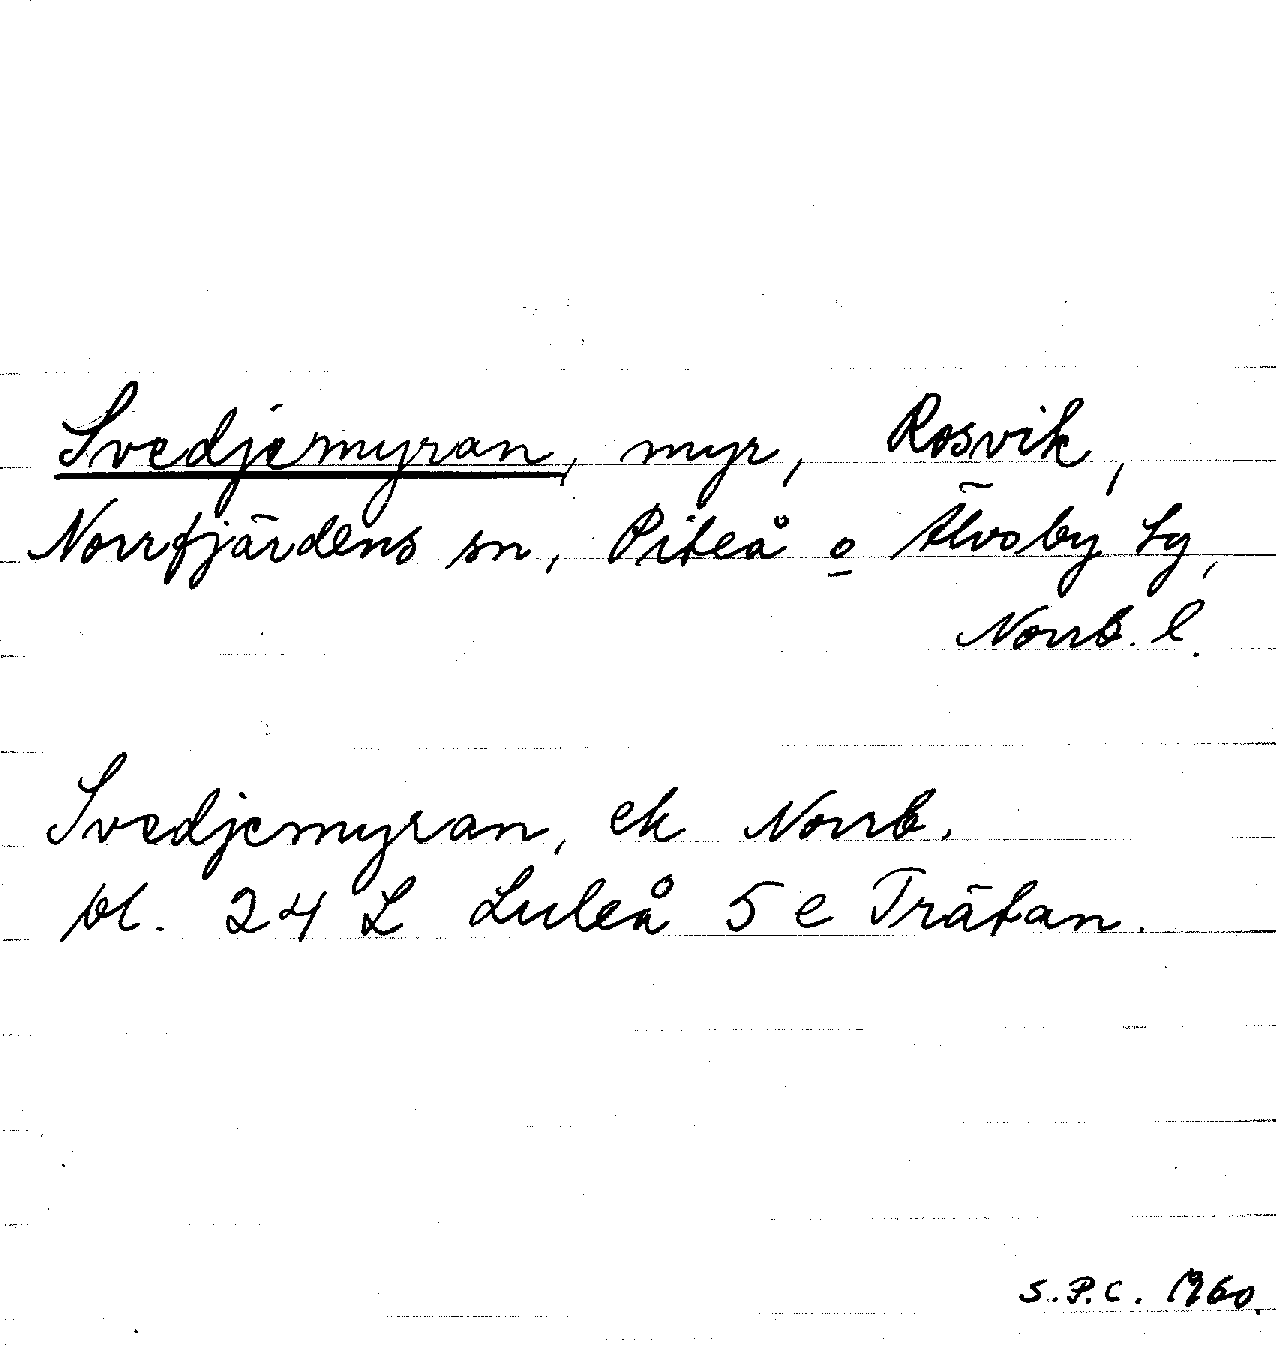 Svedjemyran, myr, Rosvik,
Norrfjärdens sn, Piteå o Älvsby tg,
Norrb. l.
Svedjemyran, ek Norrb.
bl. 24 L Luleå 5 e Trätan.
S.P.C. 1960.